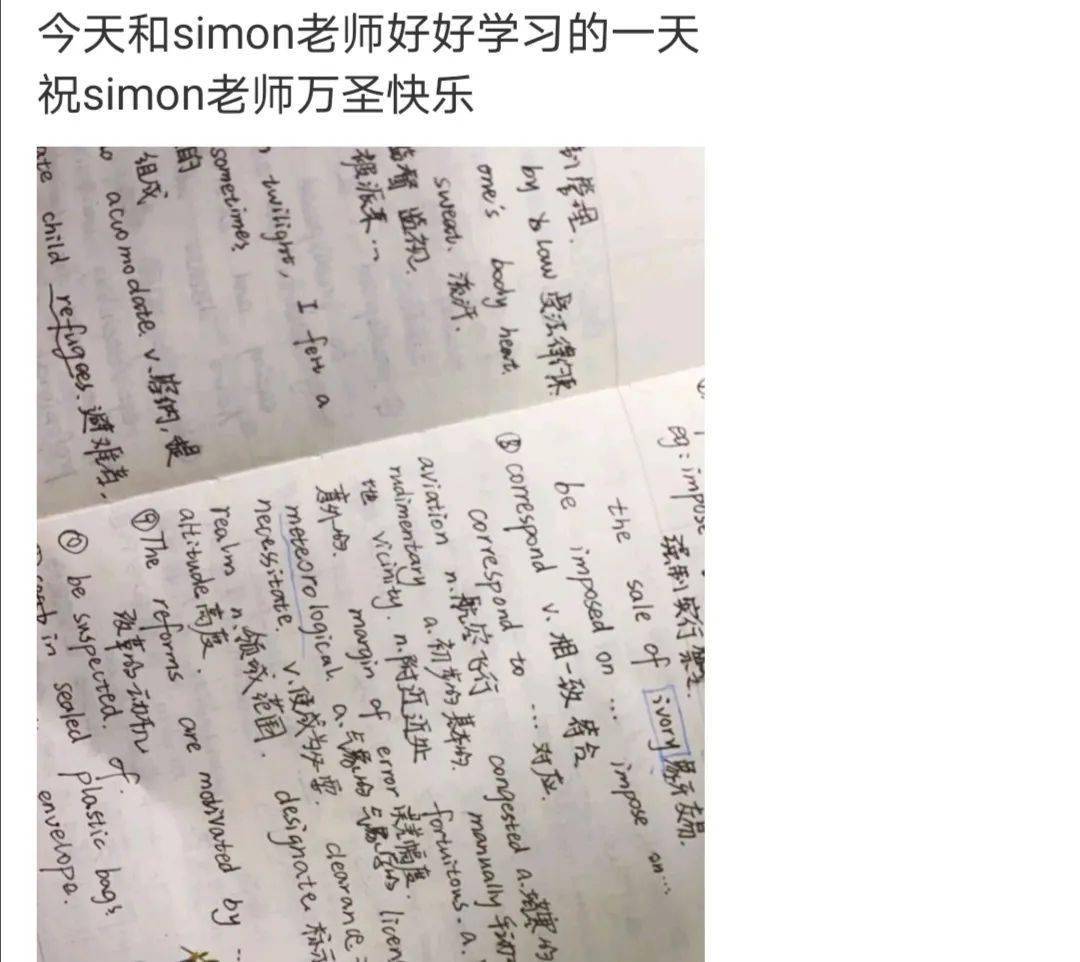 今天和simon老师好好学习的一天
祝simon老师万圣快乐
管理.
by law 受法律
one's body heat
sweat. 流汗.
监视.
被派来…
twilight, I felt a
sometimes
的
组成
acuomodate v.容纳, 提
child refugees. 避难者.
eg: impose 强制实行禁止
the sale of ivory 象牙交易.
be imposed on ... impose on...
⑧ correspond v. 相一致 符合
correspond to ... 对应.
aviation n.航空飞行 congested a.拥塞的
rudimentary a.初步的基本的. manually 手动
vicinity. n.附近近处 fortuitous. a.
意外的. margin of error 误差幅度.
meteorological. a.气象的气象学的 licen
necessitate. v.使成为必要. clearance
realm n.领域范围. designate. 标示
altitude 高度.
⑨ The reforms are motivated by ..
改革的动机
⑩ be suspected. of.
in sealed plastic bags
envelope.